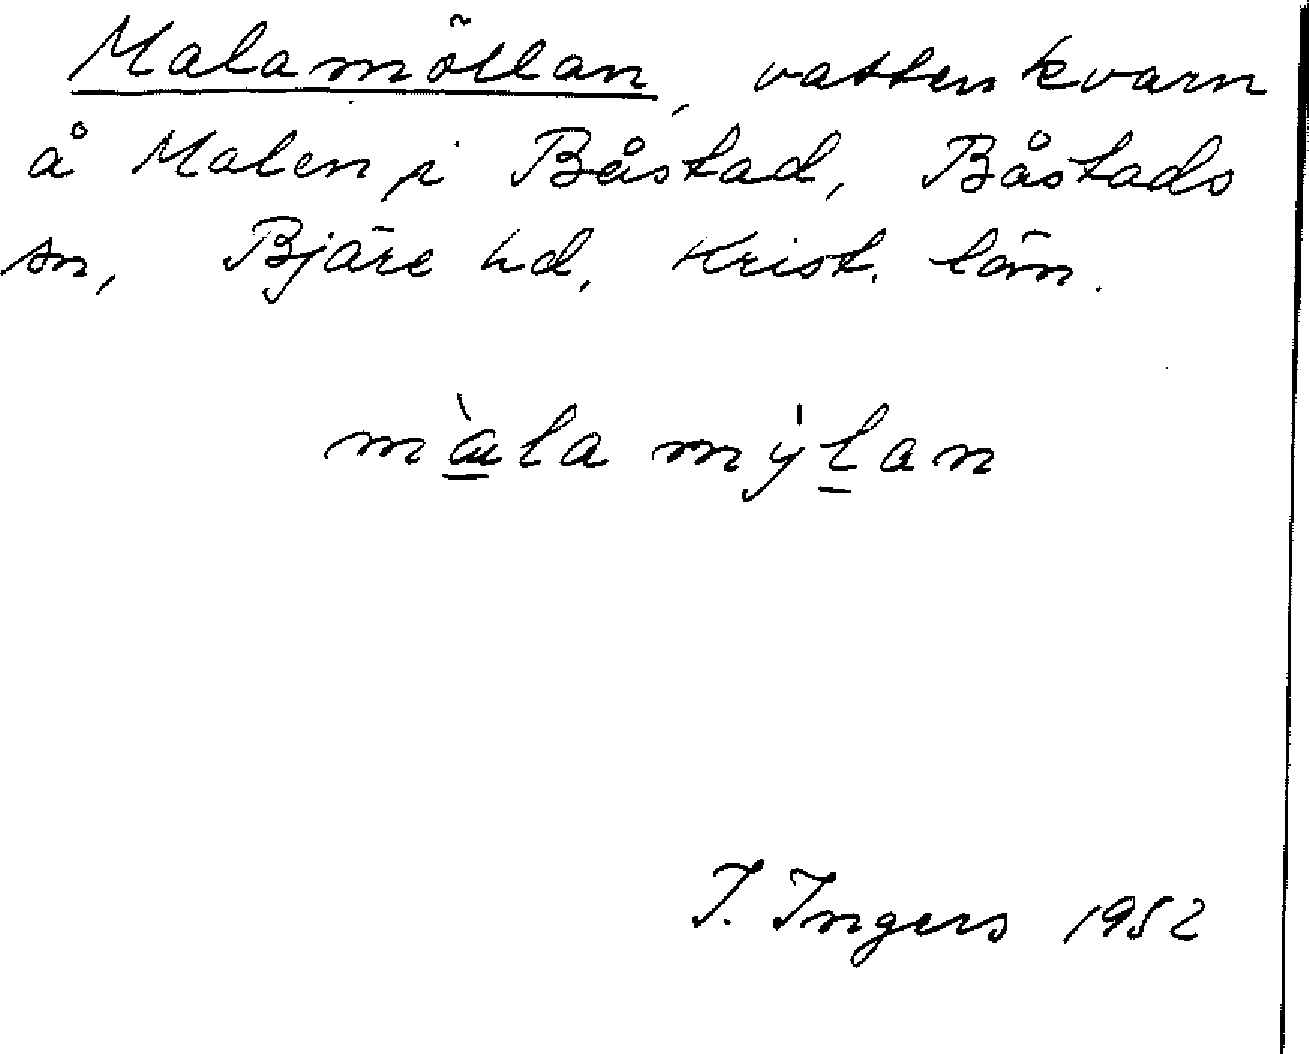 Malamöllan, vattenkvarn
å Malen i Båstad, Båstads
sn, Bjäre hd, Krist. län.
màla mýlan
I. Ingers 1952